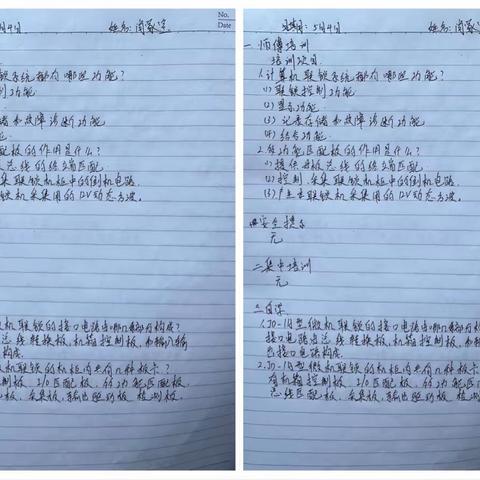 No.
Date
月4日 姓名:
锁系统都有哪些功能?
制功能
能
储和故障诊断功能
能.
配板的作用是什么?
总线的终端匹配
集联锁机柜中的倒机电路.
锁机采集用的12V动态方波。
机联锁的接口电路由哪几部分构成?
线转换板,机箱控制板,和输入输
构成.
机联锁的机柜内共有几种板卡?
制板,I/O匹配板,的功能匹配板
板,采集板,输出驱动板 检测板.
日期:5月4日 姓名:
一 师傅培训
培训项目.
1.计算机联锁系统都有哪些功能?
(1)联锁控制功能
(2)显示功能
(3)记录存储和故障诊断功能
(4)结合功能
2.总功能匹配板的作用是什么?
(1)提供母板总线的终端匹配
(2)控制,采集联锁机柜中的倒机电路.
(3)产生本联锁机采集用的12V动态方波。
安全提示
无
二 集中培训
无
三.自学
1.JD-1A型微机联锁的接口电路由哪几部分构
接口电路由总线转换板,机箱控制板,和输
出接口电路构成.
2.JD-1A型微机联锁的机柜内共有几种板卡
有机箱控制板,I/O匹配板,的功能匹配
总线匹配板,采集板,输出驱动板 检测板.